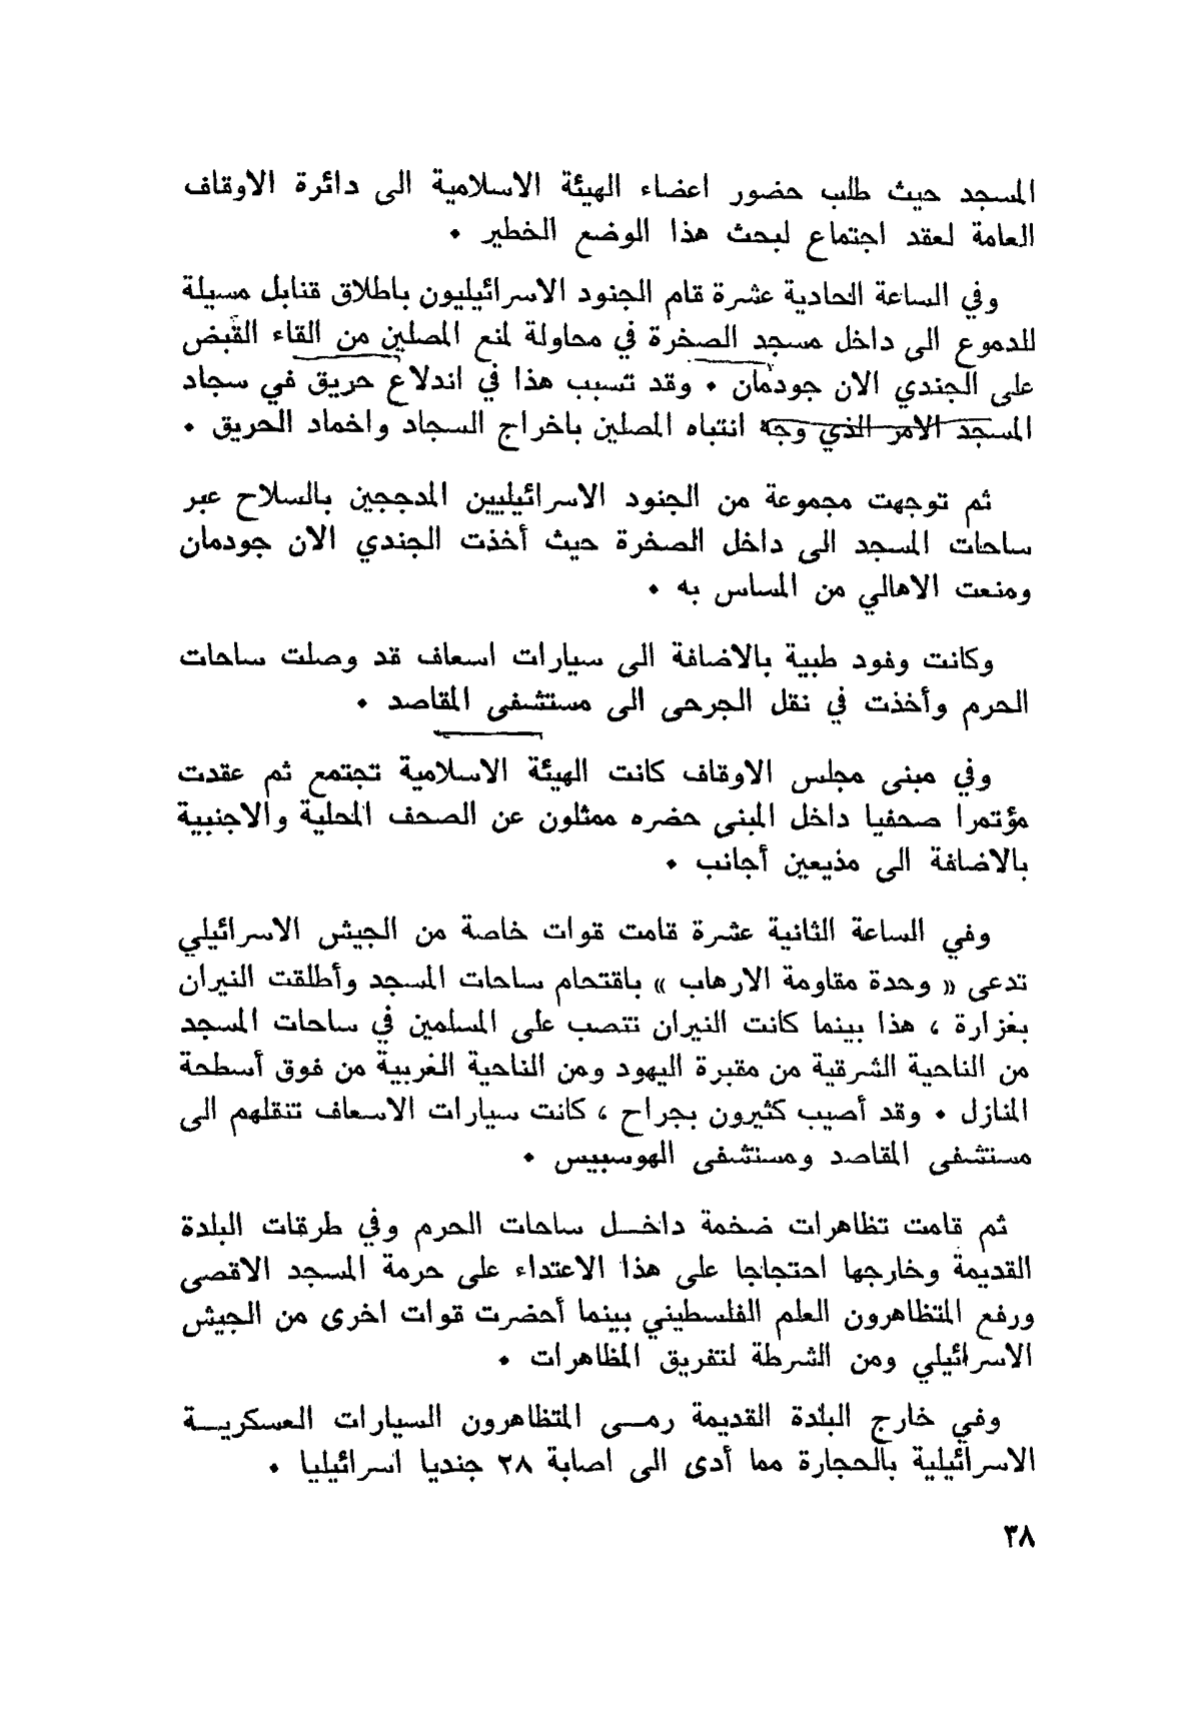 المسجد حيث طلب حضور اعضاء الهيئة الاسلامية الى دائرة الاوقاف
العامة لعقد اجتماع لبحث هذا الوضع الخطير .
وفي الساعة الحادية عشرة قام الجنود الاسرائيليون باطلاق قنابل مسيلة
للدموع الى داخل مسجد الصخرة في محاولة لمنع المصلين من القاء القبض
على الجندي الان جودمان . وقد تسبب هذا في اندلاع حريق في سجاد
المسجد الامر الذي وجه انتباه المصلين باخراج السجاد واخماد الحريق .
ثم توجهت مجموعة من الجنود الاسرائيليين المدججين بالسلاح عبر
ساحات المسجد الى داخل الصخرة حيث أخذت الجندي الان جودمان
ومنعت الاهالي من المساس به .
وكانت وفود طبية بالاضافة الى سيارات اسعاف قد وصلت ساحات
الحرم وأخذت في نقل الجرحى الى مستشفى المقاصد .
وفي مبنى مجلس الاوقاف كانت الهيئة الاسلامية تجتمع ثم عقدت
مؤتمرا صحفيا داخل المبنى حضره ممثلون عن الصحف المحلية والاجنبية
بالاضافة الى مذيعين أجانب .
وفي الساعة الثانية عشرة قامت قوات خاصة من الجيش الاسرائيلي
تدعى « وحدة مقاومة الارهاب » باقتحام ساحات المسجد وأطلقت النيران
بغزارة ، هذا بينما كانت النيران تنصب على المسلمين في ساحات المسجد
من الناحية الشرقية من مقبرة اليهود ومن الناحية الغربية من فوق أسطحة
المنازل . وقد أصيب كثيرون بجراح ، كانت سيارات الاسعاف تنقلهم الى
مستشفى المقاصد ومستشفى الهوسبيس .
ثم قامت تظاهرات ضخمة داخـل ساحات الحرم وفي طرقات البلدة
القديمة وخارجها احتجاجا على هذا الاعتداء على حرمة المسجد الاقصى
ورفع المتظاهرون العلم الفلسطيني بينما أحضرت قوات اخرى من الجيش
الاسرائيلي ومن الشرطة لتفريق المظاهرات .
وفي خارج البلدة القديمة رمـى المتظاهرون السيارات العسكريـة
الاسرائيلية بالحجارة مما أدى الى اصابة ٢٨ جنديا اسرائيليا .
٣٨